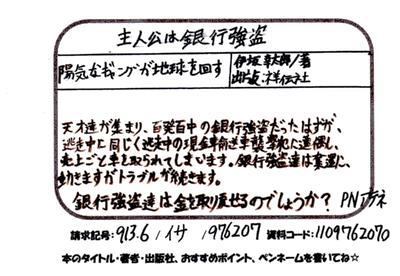 主人公は銀行強盗
陽気なギャングが地球を回す
伊坂幸太郎/著
出版 祥伝社
天才達が集まり、百発百中の銀行強盗だったはずが、
逃走中に同じく逃走中の現金輸送車襲撃犯に遭遇し、
売上ごと車を取られてしまいます。銀行強盗達は奪還に
動きますがトラブルが続きます。
銀行強盗達は金を取り戻せるのでしょうか? PNアテネ
請求記号:913.6 / イサ / 976207 資料コード:1109762070
本のタイトル・著者・出版社、おすすめポイント、ペンネームを書いてね☆